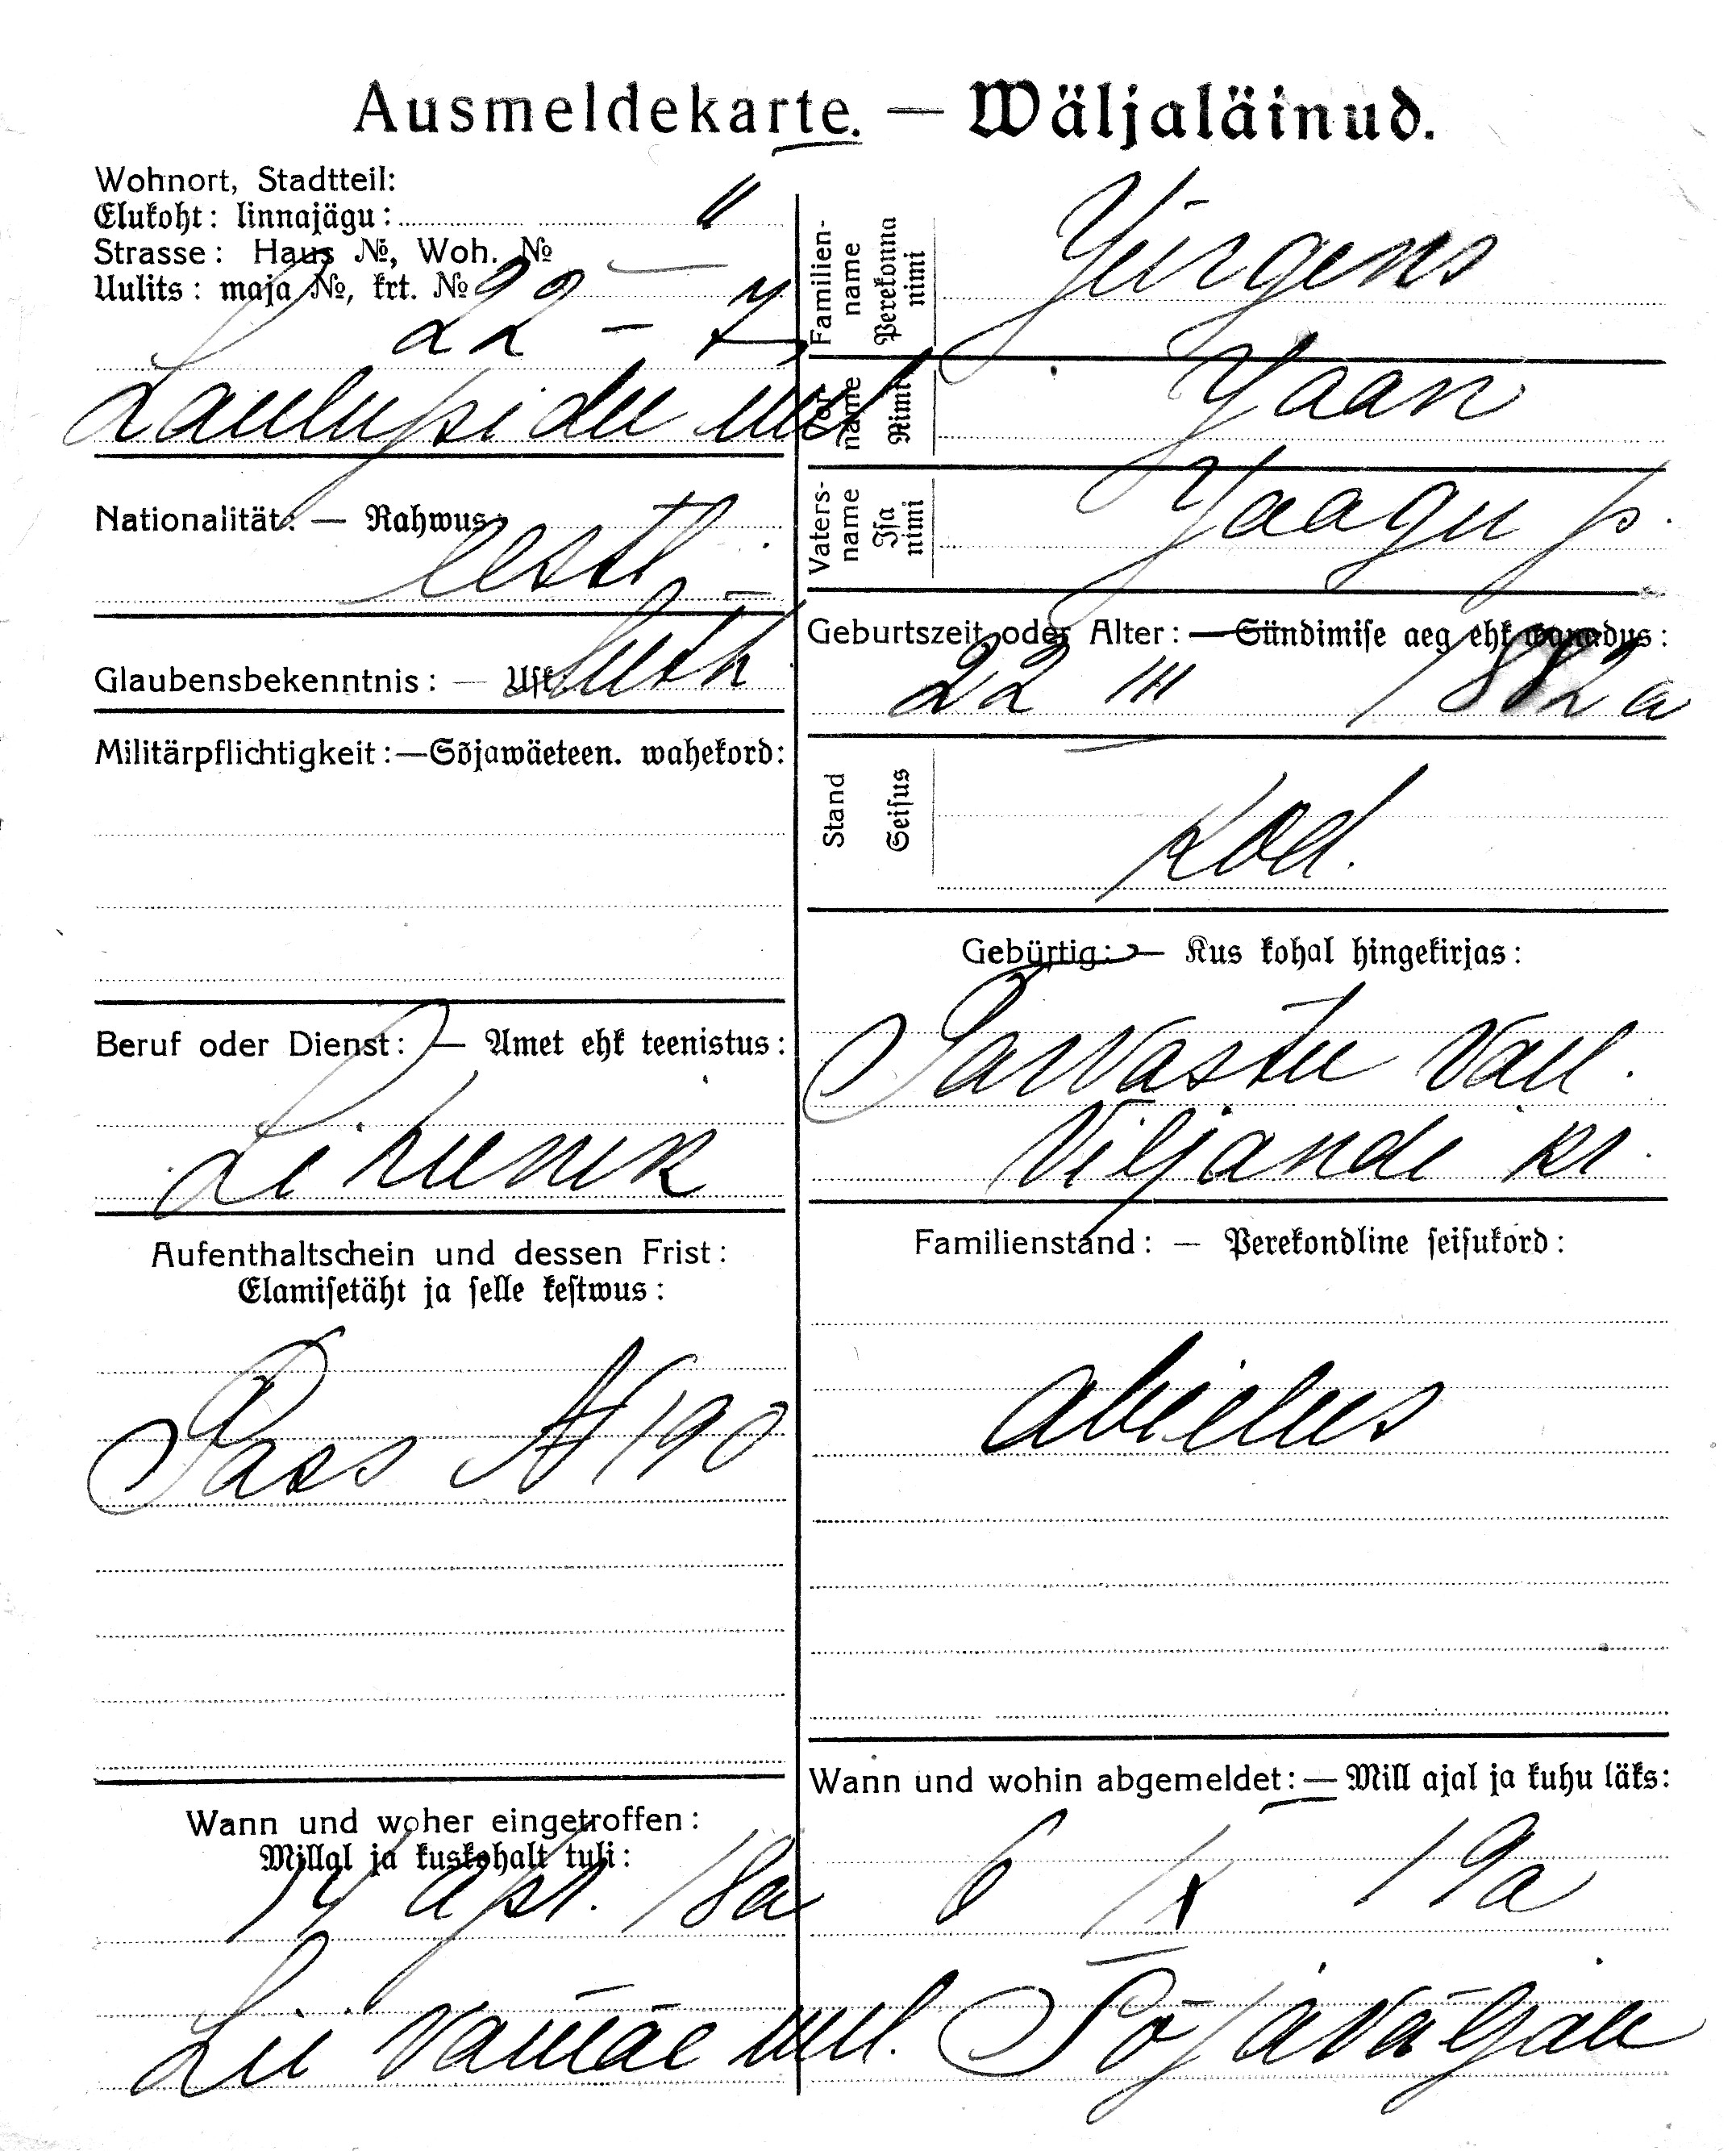 Ausmeldekarte. — Wäljaläinud.
Wohnort, Stadtteil:
Elukoht: linnajägu: II
Strasse: Haus №, Woh. №
Uulits: maja №, krt. №
22 – 7
Laulupidu uul
Nationalität: — Rahwus:
eesti
Glaubensbekenntnis: — Usk
luth
Militärpflichtigkeit:—Sõjawäeteen. wahekord:
Beruf oder Dienst: — Amet ehk teenistus:
Lihunik
Aufenthaltschein und dessen Frist:
Elamisetäht ja selle kestwus:
Pass № 190
Wann und woher eingetroffen:
Millal ja kuskohalt tuli:
14 apr. 18a
uul.
Familien-
name
Perekonna
nimi
Yürgens
Vor-
name
Nimi
Yaan
Vaters-
name
Isa
nimi
Yaagu p.
Geburtszeit oder Alter: — Sündimise aeg ehk wanadus:
22 III 1882 a
Stand
Seisus
kod.
Gebürtig: — Kus kohal hingekirjas:
Parvastu vall.
Viljandi kr.
Familienstand: — Perekondline seisukord:
abielus
Wann und wohin abgemeldet: — Mill ajal ja kuhu läks:
6 IX 19a
Sõjaväljale